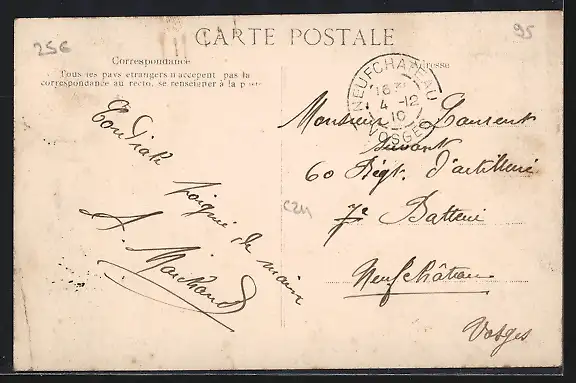 25€
95
CARTE POSTALE
Correspondance
Adresse
Tous les pays étrangers n'acceptent pas la
correspondance au recto, se renseigner à la p
NEUFCHATEAU
4 -12
10
VOSGES
Cordiale
poignée de main
A. Marchand
Monsieur Laurent
60 Régt. d'artillerie
7e Batterie
Neufchâteau
Vosges